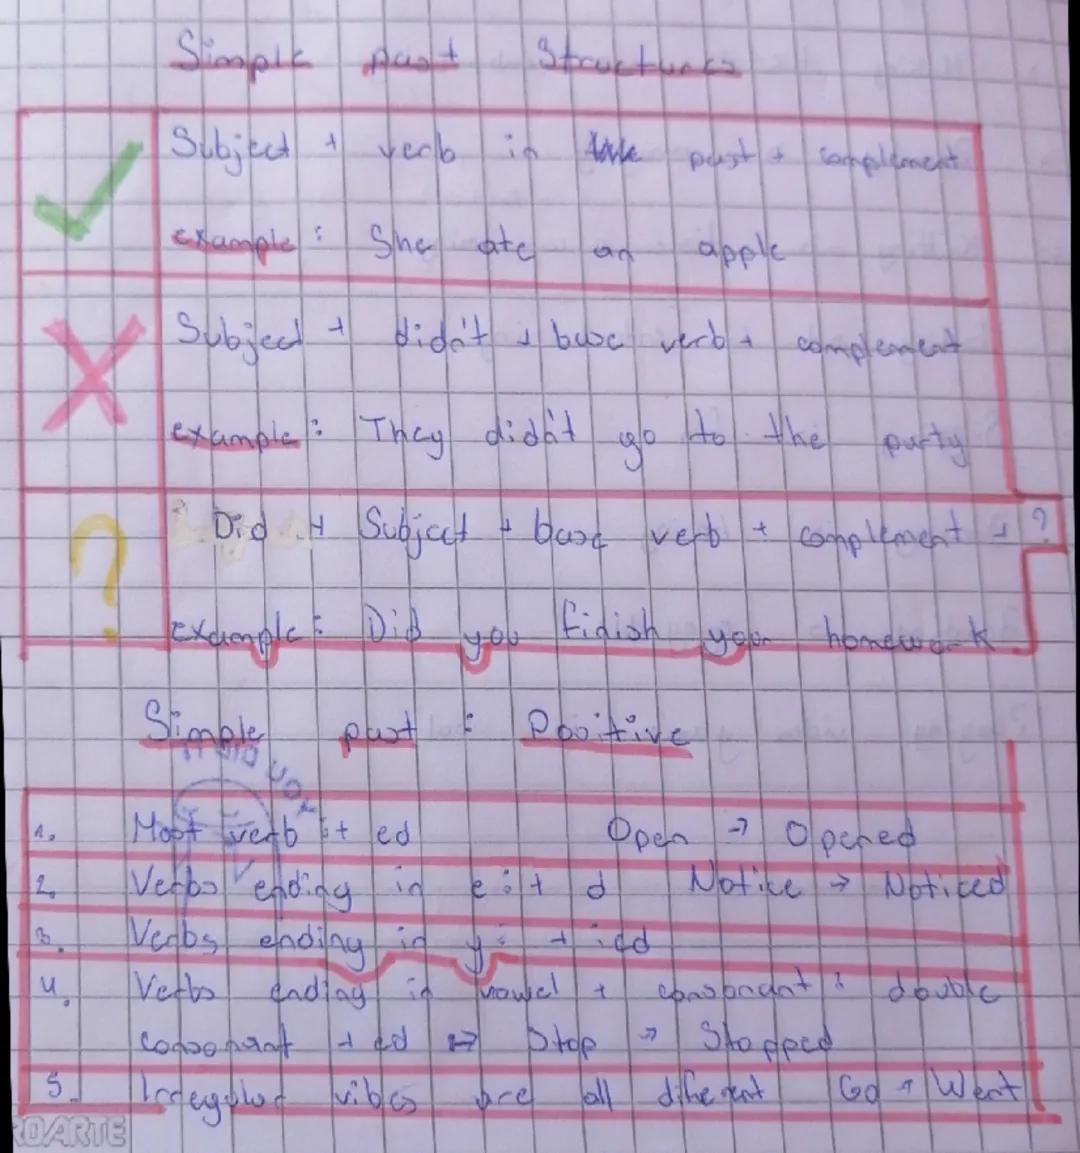 Simple past Structures
Subject + verb in the past + complement
example: She ate an apple
Subject + didn't + base verb + complement
example: They didn't go to the party
Did + Subject + base verb + complement + ?
example: Did you finish your homework
Simple past: Positive
1. Most verb: + ed Open → Opened
2. Verbs ending in e: + d Notice → Noticed
3. Verbs ending in y: + ied
4. Verbs ending in vowel + consonant: double
consonant + ed → Stop → Stopped
5. Irregular vibes are all diferent Go → Went
ROARTE